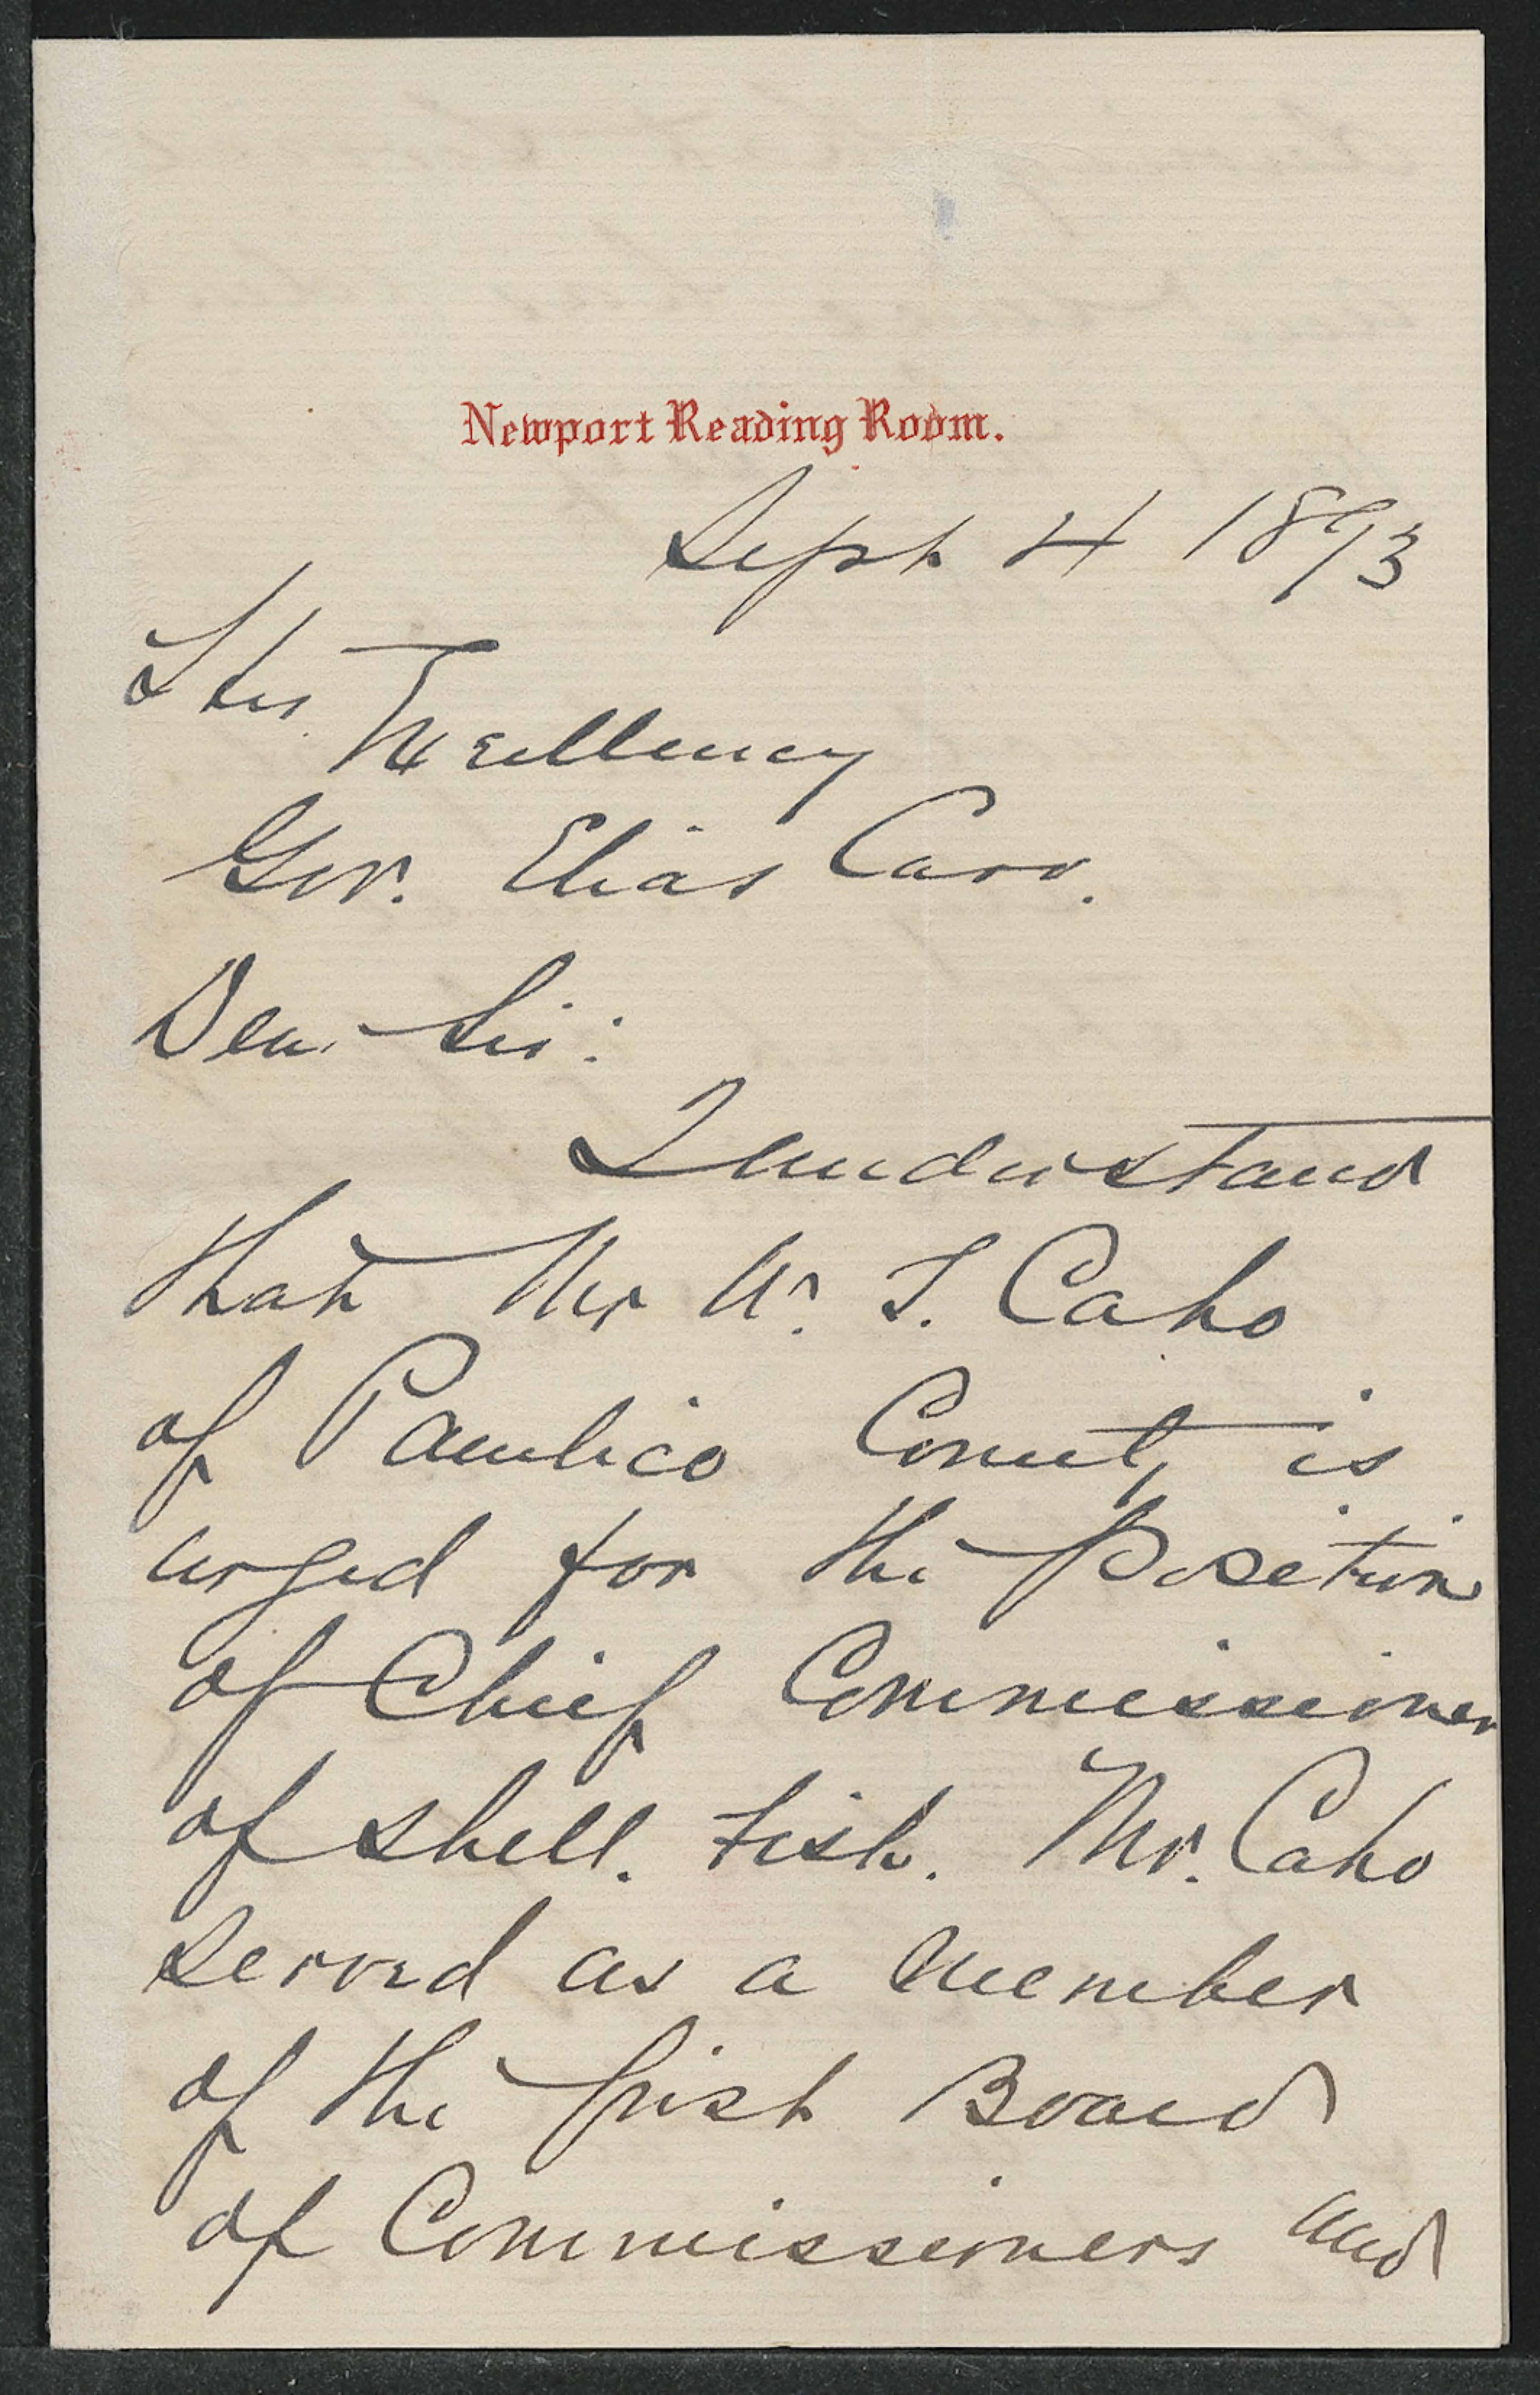 Newport Reading Room.
Sept 4 1893
His
Excellency
Gov. Elias Carr.
Dear Sir:
I understand
that Mr W. T. Caho
of Pamlico County is
urged for the Position
of Chief Commissioner
of Shell. Fish. Mr. Caho
served as a member
of the first Board
of Commissioners and